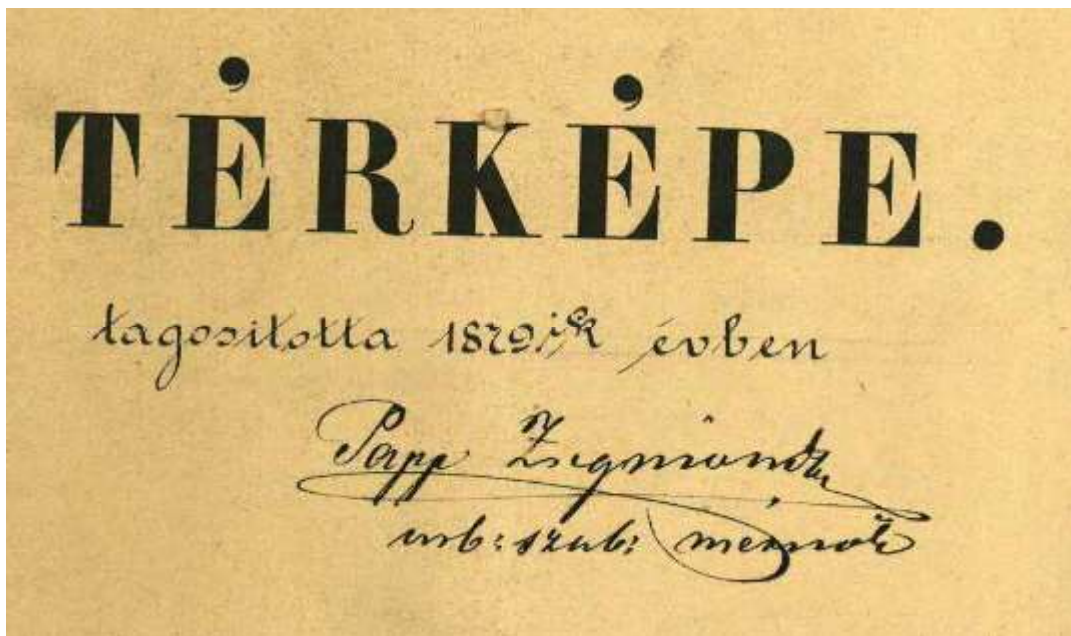 TÉRKÉPE.
tagositotta 1879ik évben
Papp Zsigmond
urb: szab: mérnök